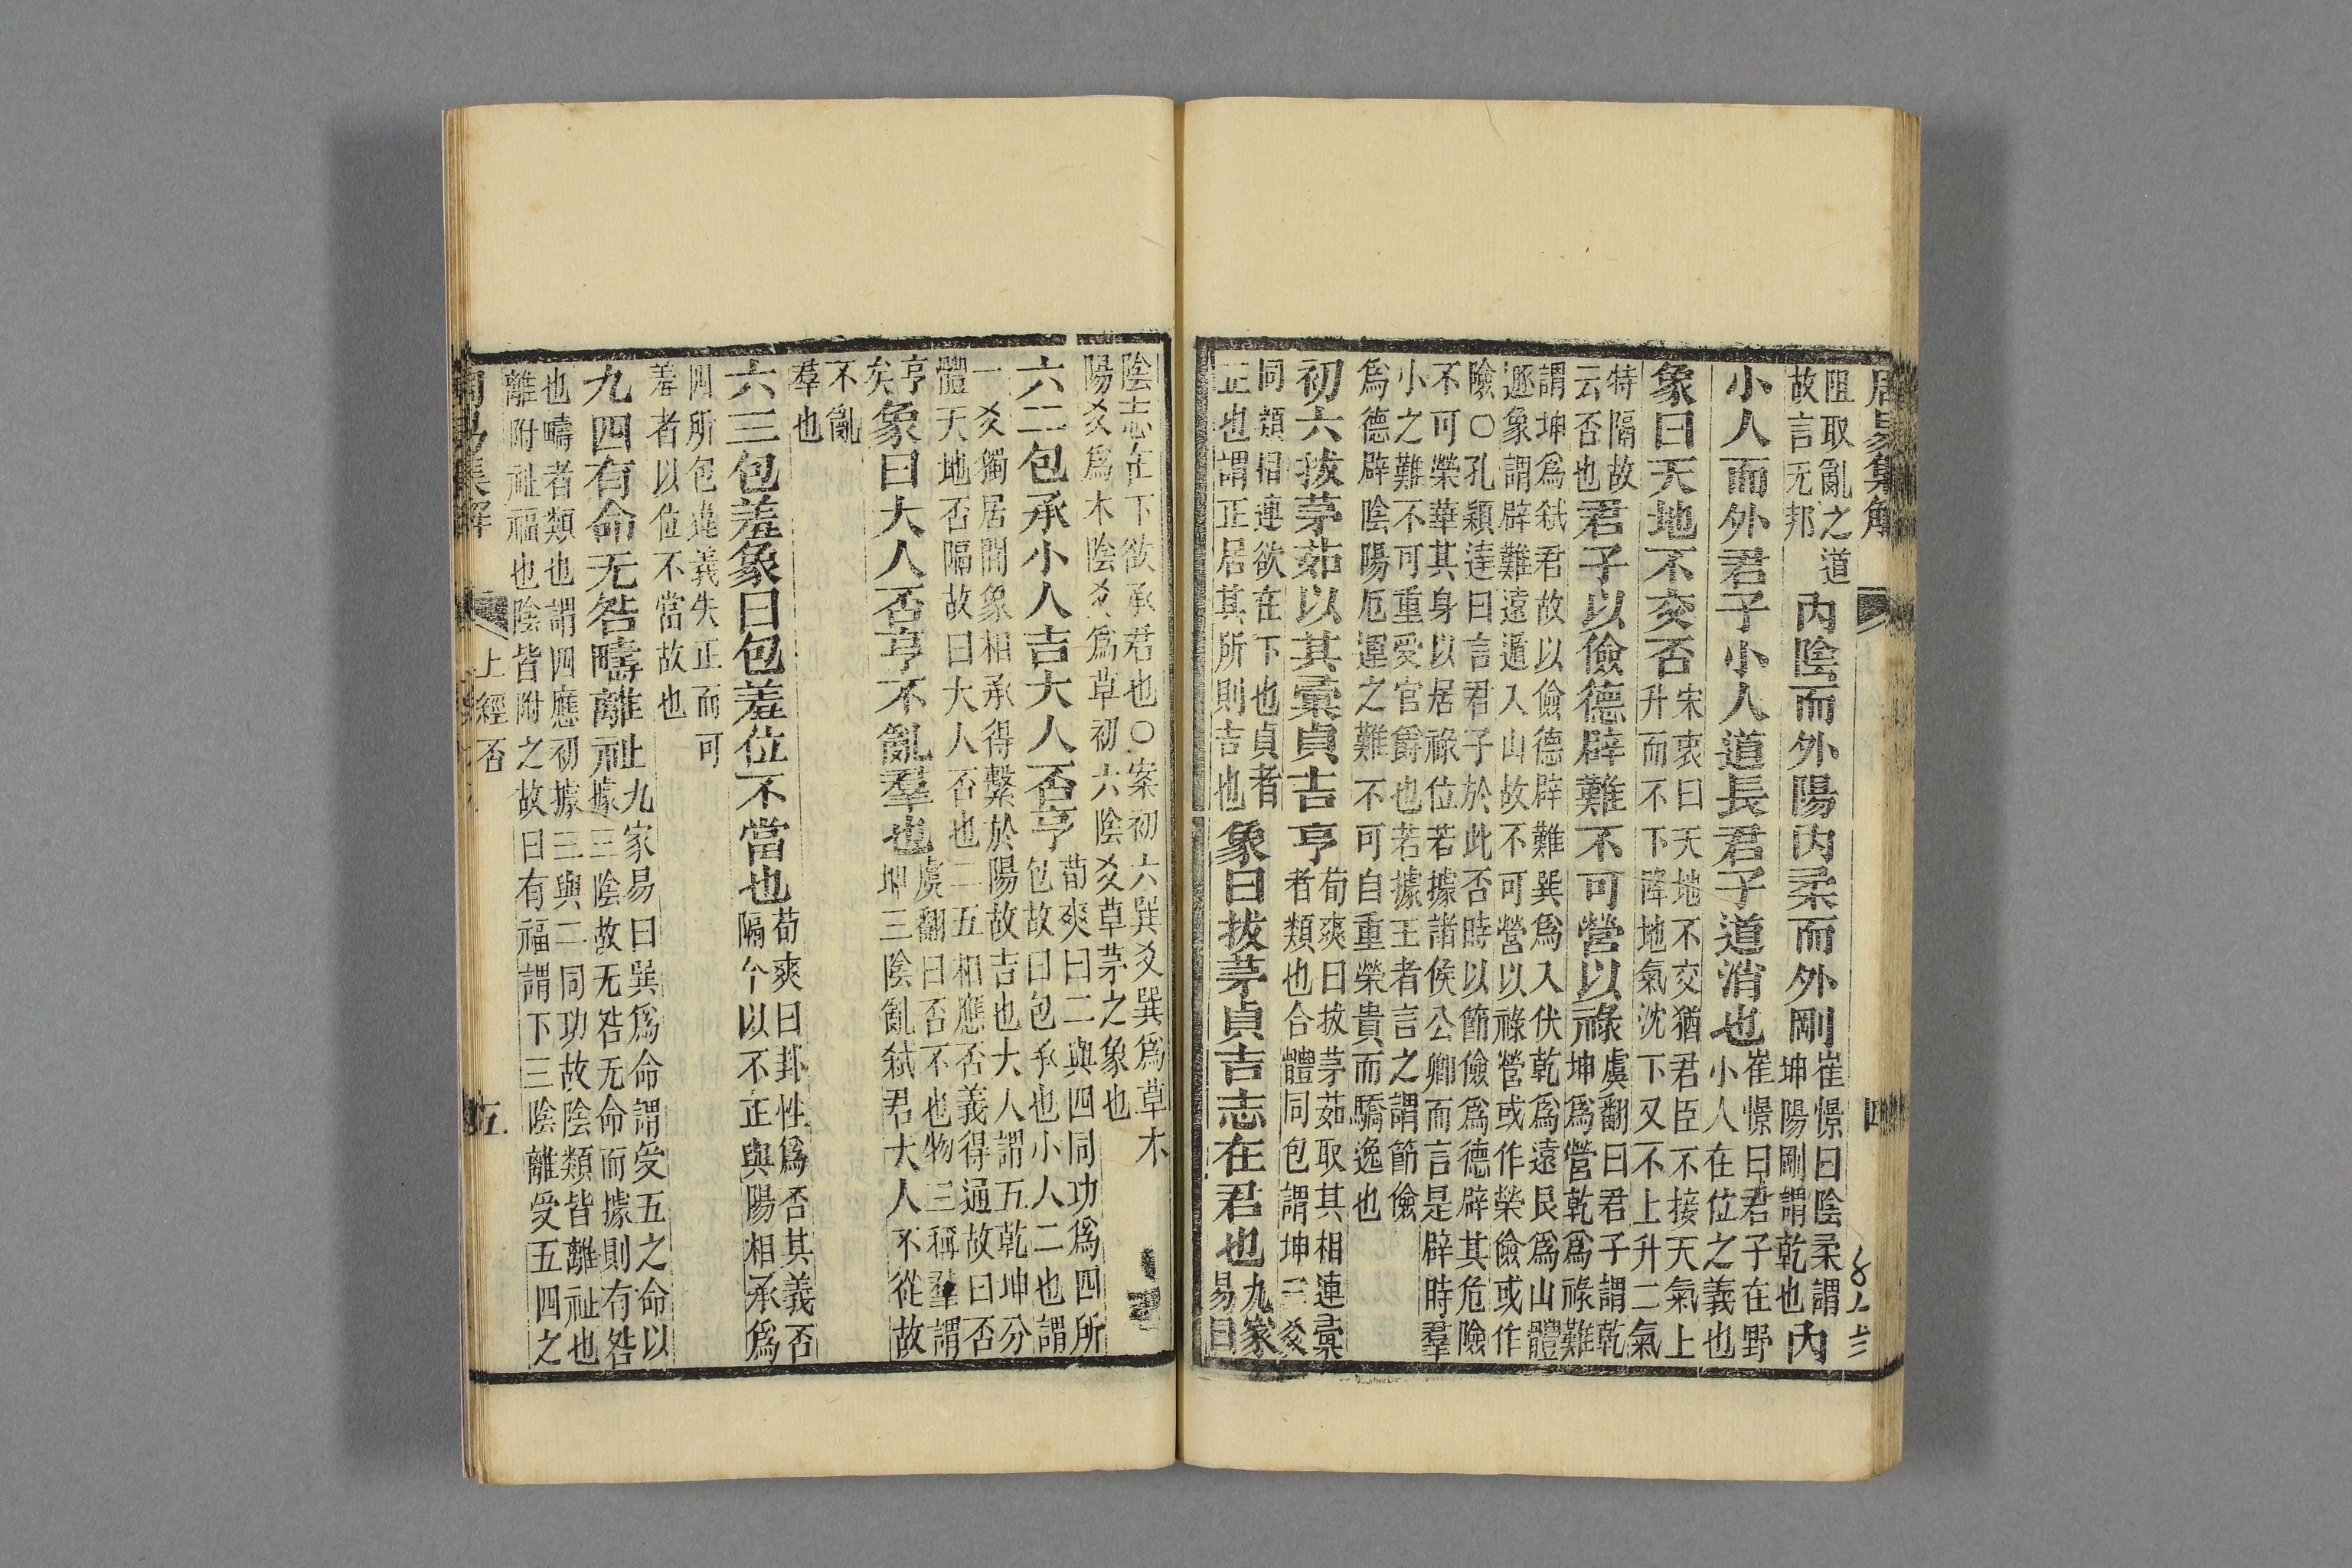 周易集解
四
阻取亂之道
故言无邦
內陰而外陽內柔而外剛
崔憬曰陰柔謂
坤陽剛謂乾也
內
小人而外君子小人道長君子道消也
崔憬曰君子在野
小人在位之義也
象曰天地不交否
宋衷曰天地不交猶君臣不接天氣上
升而不下降地氣沈下又不上升二氣
特隔故
云否也
君子以儉德辟難不可營以祿
虞翻曰君子謂乾
坤爲營乾爲祿難
謂坤爲弑君故以儉德辟難巽爲入伏乾爲遠艮爲山體
遯象謂辟難遠遁入山故不可營以祿營或作榮儉或作
險○孔穎達曰言君子於此否時以節儉爲德辟其危險
不可榮華其身以居祿位若據諸侯公卿而言是辟時羣
小之難不可重受官爵也若據王者言之謂節儉
爲德辟陰陽厄運之難不可自重榮貴而驕逸也
初六拔茅茹以其彙貞吉亨
荀爽曰拔茅茹取其相連彙
者類也合體同包謂坤三爻
同類相連欲在下也貞者
正也謂正居其所則吉也
象曰拔茅貞吉志在君也
九家
易曰
陰志在下欲承君也○案初六巽爻巽爲草木
陽爻爲木陰爻爲草初六陰爻草茅之象也
六二包承小人吉大人否亨
荀爽曰二與四同功爲四所
包故曰包承也小人二也謂
一爻獨居間象相承得繫於陽故吉也大人謂五乾坤分
體天地否隔故曰大人否也二五相應否義得通故曰否
亨
矣
象曰大人否亨不亂羣也
虞翻曰否不也物三稱羣謂
坤三陰亂弑君大人不從故
不亂
羣也
六三包羞象曰包羞位不當也
荀爽曰卦性爲否其義否
隔今以不正與陽相承爲
四所包違義失正而可
羞者以位不當故也
九四有命无咎疇離祉
九家易曰巽爲命謂受五之命以
據三陰故无咎无命而據則有咎
也疇者類也謂四應初據三與二同功故陰類皆離祉也
離附祉福也陰皆附之故曰有福謂下三陰離受五四之
周易集解
上經 否
五